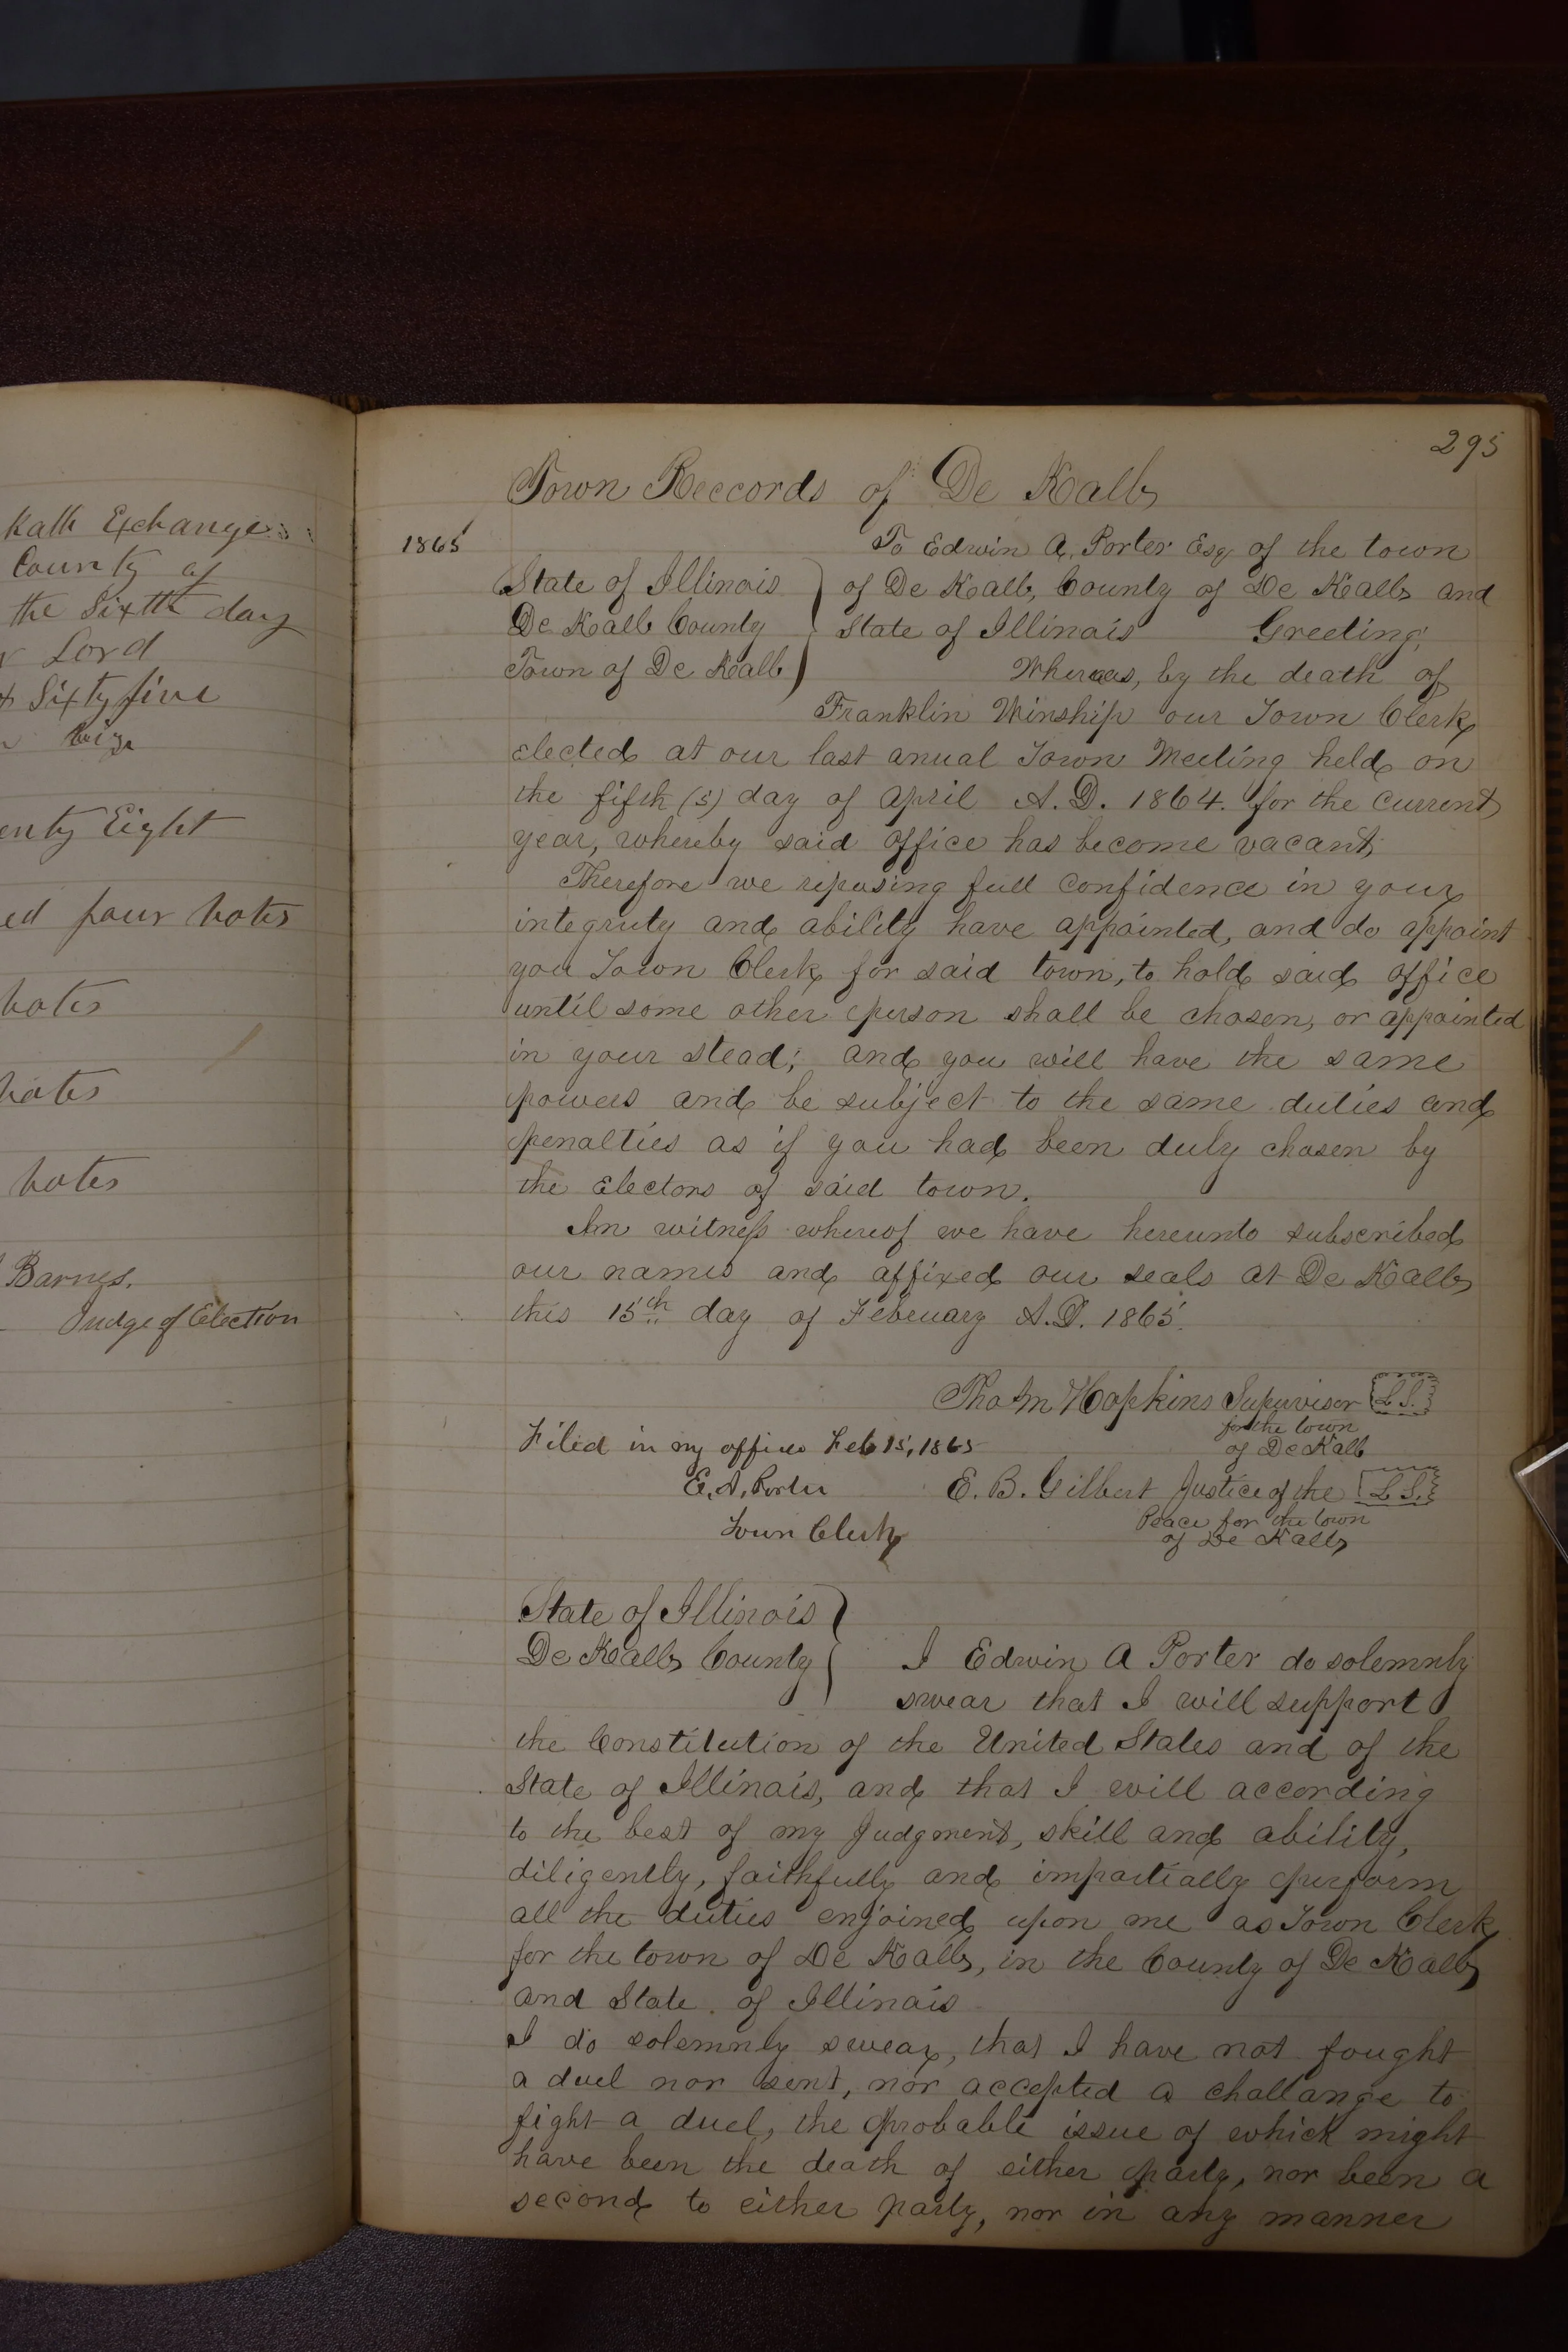 Kalb Exchange
County of
the Sixth day
Lord
Sixty five
enty Eight
ed four votes
votes
votes
votes
Barnes.
Judge of Election
295
Town Reccords of De Kalb
1865
To Edwin A. Porter Esq of the town
State of Illinois
of De Kalb, County of De Kalb and
De Kalb County
State of Illinois Greeting;
Town of De Kalb
Whereas, by the death of
Franklin Winship our Town Clerk
elected at our last anual Town Meeting held on
the fifth (5) day of April A.D. 1864. for the current
year, whereby said office has become vacant;
Therefore we reposing full confidence in your
integrity and ability have appointed, and do appoint
you Town Clerk for said town, to hold said office
until some other person shall be chosen, or appointed
in your stead; and you will have the same
powers and be subject to the same duties and
penalties as if you had been duly chosen by
the electors of said town.
In witness whereof we have hereunto subscribed
our names and affixed our seals at De Kalb
this 15th day of Febuary A.D. 1865.
Tho M Hopkins Supervisor L.S.
for the town
of De Kalb
Filed in my office Feb 15, 1865
E. A. Porter
Town Clerk
E. B. Gilbert Justice of the L.S.
Peace for the town
of De Kalb
State of Illinois
De Kalb County
I Edwin A Porter do solemnly
swear that I will support
the Constitution of the United States and of the
State of Illinois, and that I will according
to the best of my Judgment, skill and ability,
diligently, faithfully and impartially perform
all the duties enjoined upon me as Town Clerk
for the town of De Kalb, in the County of De Kalb
and State of Illinois
I do solemnly swear, that I have not fought
a duel nor sent, nor accepted a challange to
fight a duel, the probable issue of which might
have been the death of either party, nor been a
second to either party, nor in any manner